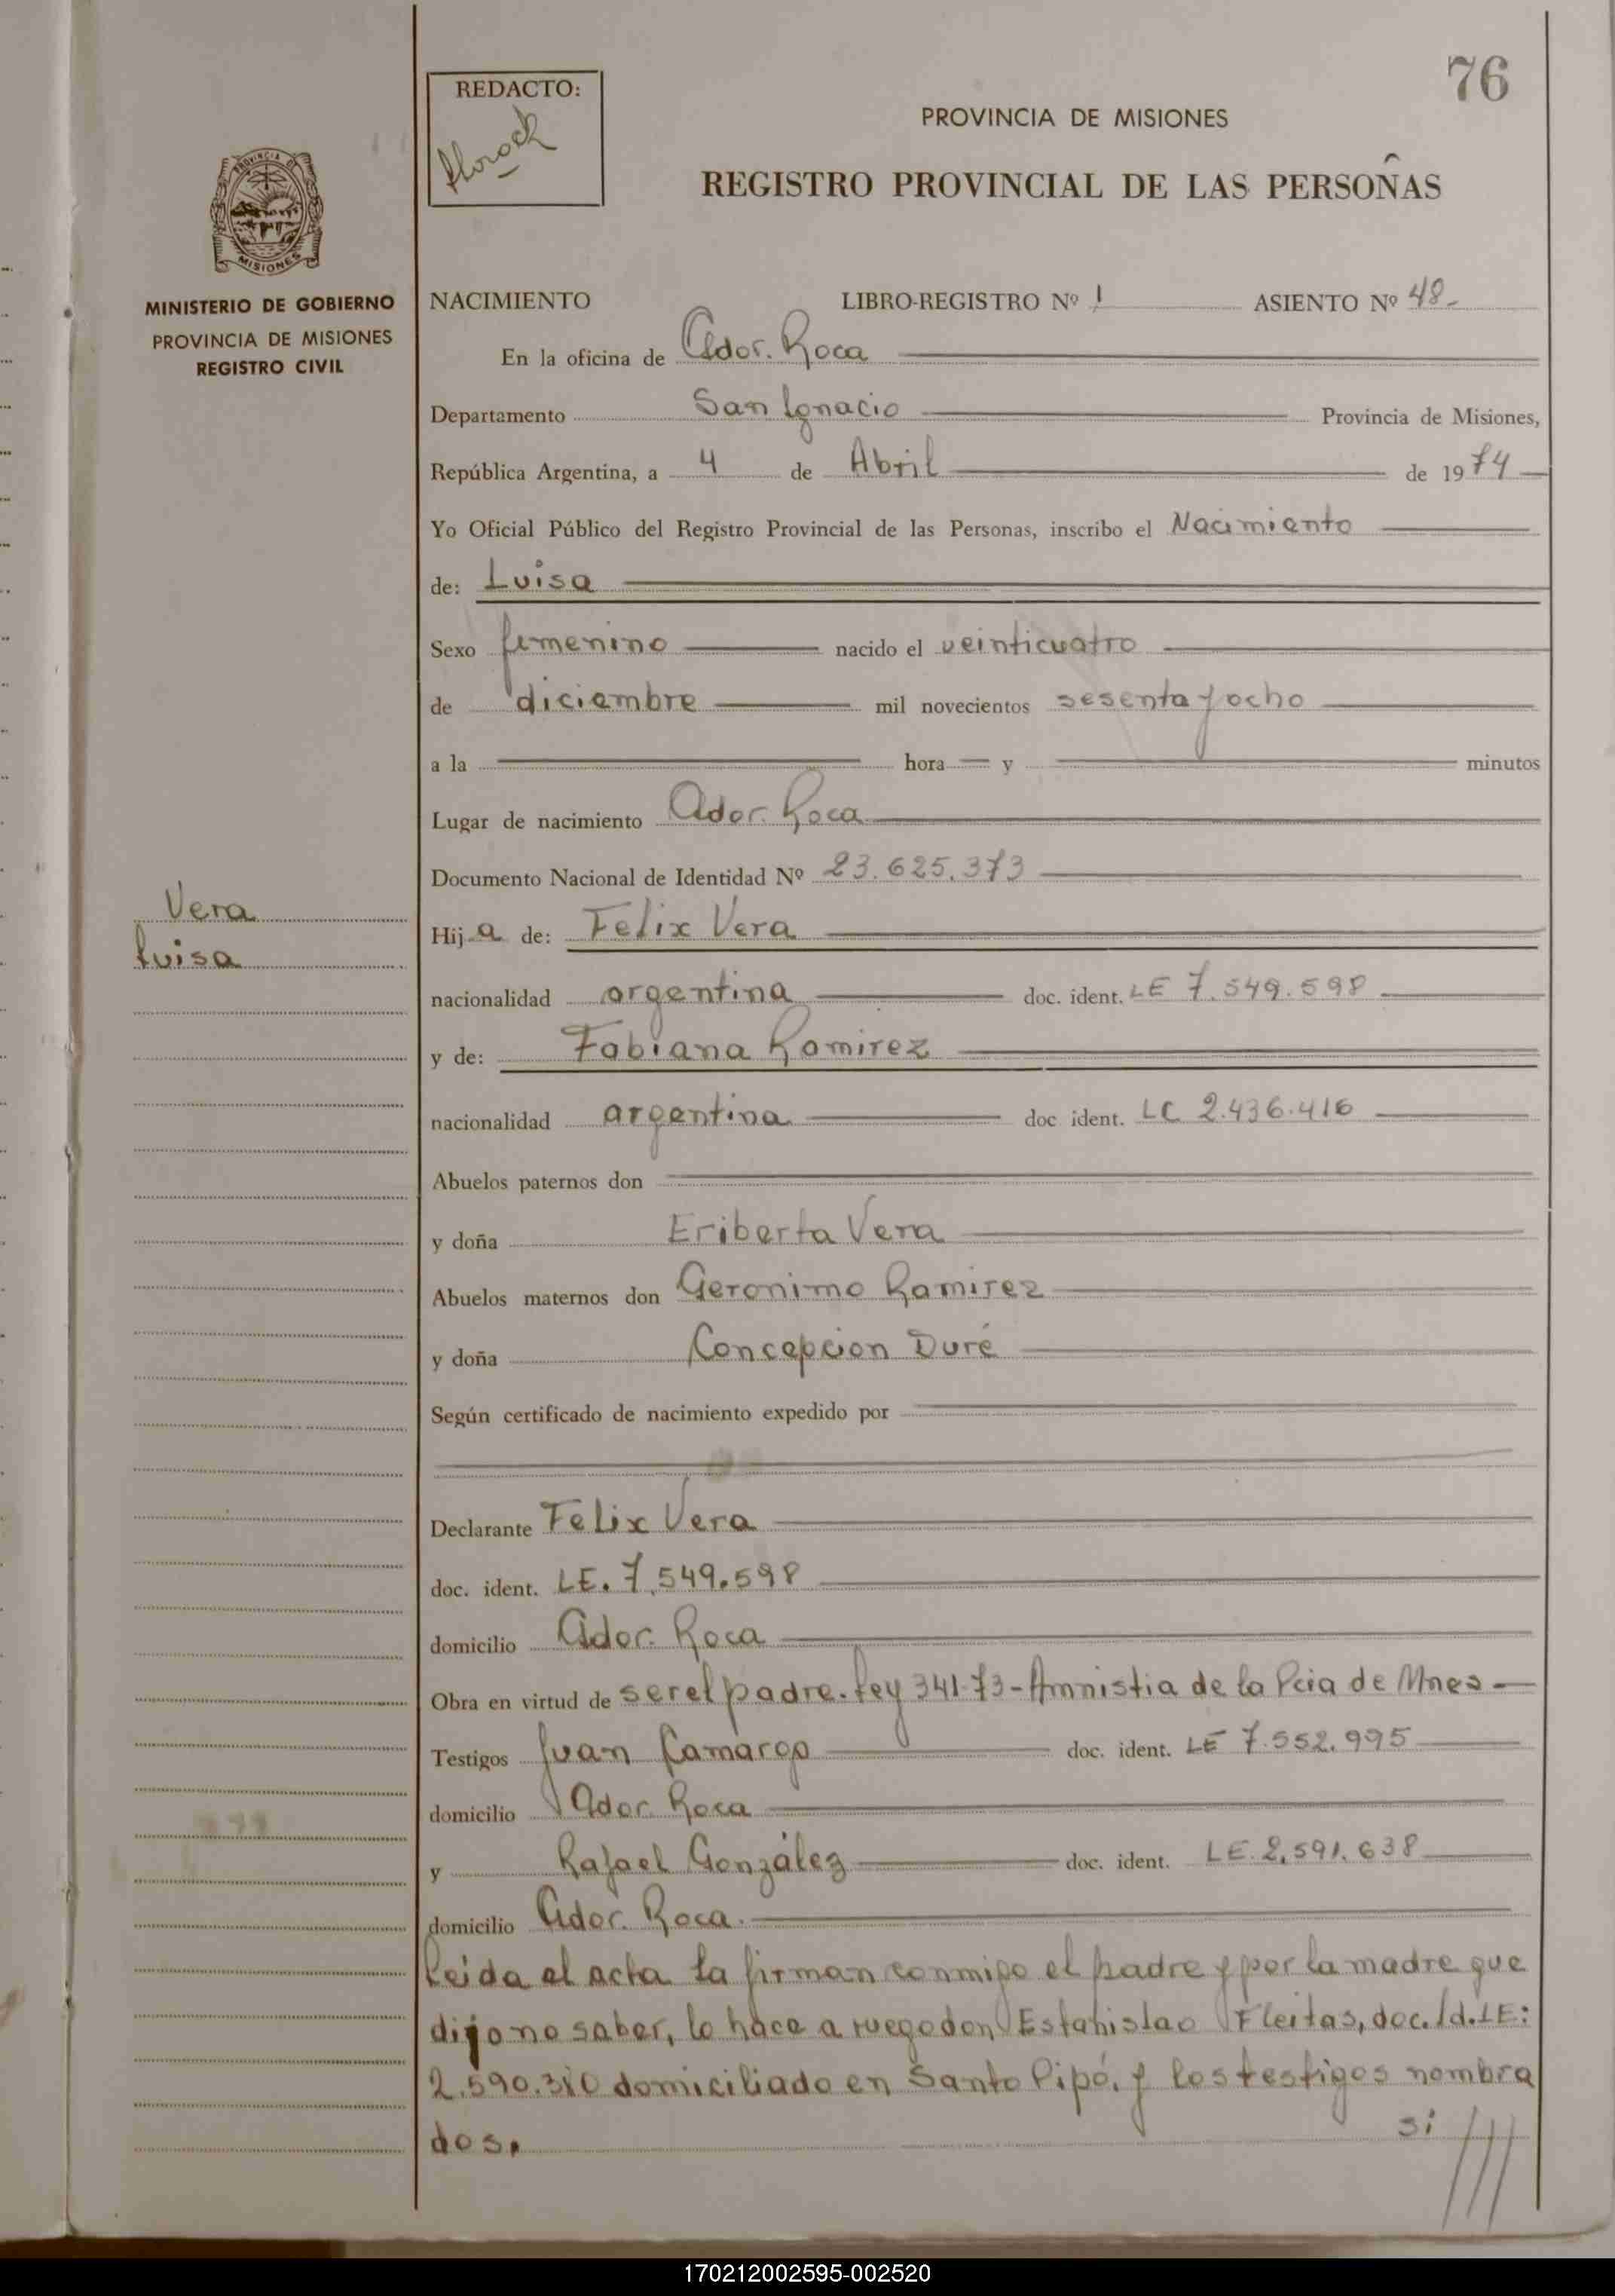 76
REDACTO:
PROVINCIA DE MISIONES
REGISTRO PROVINCIAL DE LAS PERSONAS
PROVINCIA DE
MISIONES
MINISTERIO DE GOBIERNO
PROVINCIA DE MISIONES
REGISTRO CIVIL
NACIMIENTO LIBRO-REGISTRO Nº 1 ASIENTO Nº 48-
En la oficina de Gdor. Roca
Departamento San Ignacio Provincia de Misiones,
República Argentina, a 4 de Abril de 1974
Yo Oficial Público del Registro Provincial de las Personas, inscribo el Nacimiento
de: Luisa
Sexo femenino nacido el veinticuatro
de diciembre mil novecientos sesenta y ocho
a la hora y minutos
Lugar de nacimiento Gdor. Roca
Documento Nacional de Identidad Nº 23.625.373
Vera
Luisa
Hija de: Felix Vera
nacionalidad argentina doc. ident. LE 7.549.598
y de: Fabiana Ramirez
nacionalidad argentina doc ident. LC 2.436.416
Abuelos paternos don
y doña Eriberta Vera
Abuelos maternos don Geronimo Ramirez
y doña Concepcion Duré
Según certificado de nacimiento expedido por
Declarante Felix Vera
doc. ident. LE. 7.549.598
domicilio Gdor. Roca
Obra en virtud de ser el padre. Ley 341-73-Amnistia de la Pcia de Mnes
Testigos Juan Camargo doc. ident. LE 7.552.995
domicilio Gdor Roca
y Rafael González doc. ident. LE. 2.591.638
domicilio Gdor. Roca.
Leida el acta la firman conmigo el padre y por la madre que
dijo no saber, lo hace a ruego don Estanislao Fleitas, doc. Id. LE:
2.590.310 domiciliado en Santo Pipó, y los testigos nombra
dos.
si
170212002595-002520